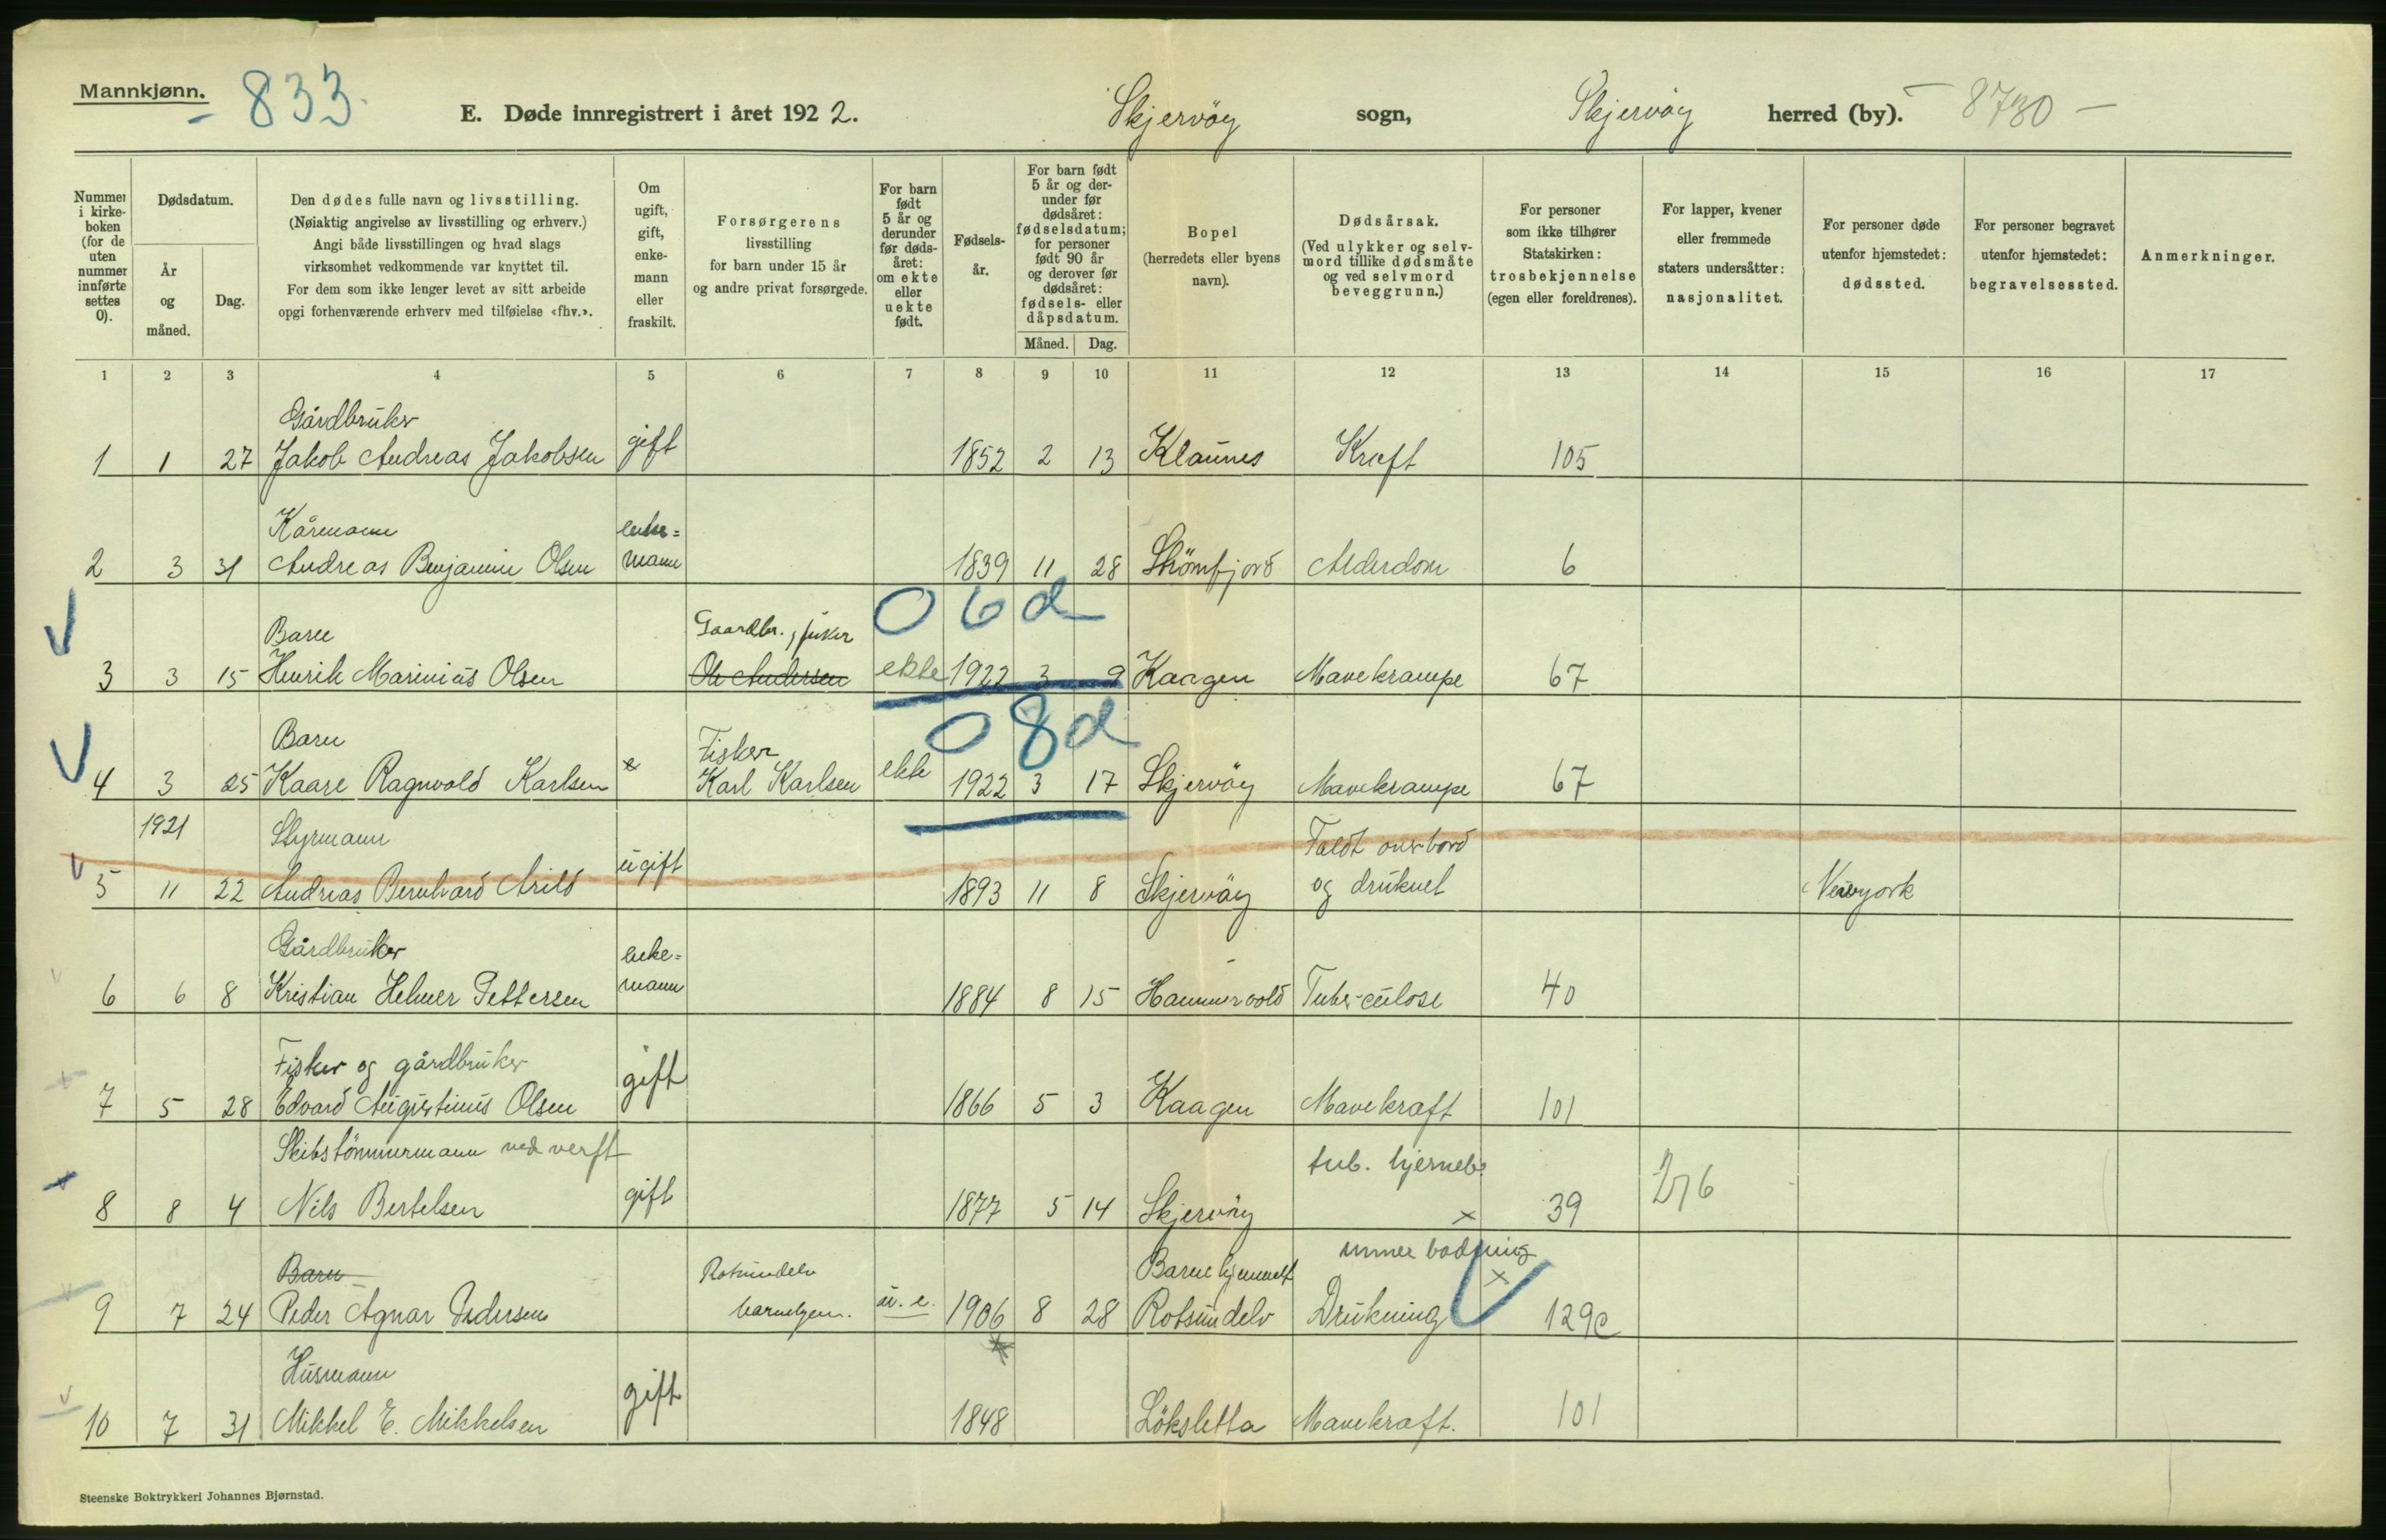 Mannkjønn.
833.
E. Døde innregistrert i året 1922.
Skjervöy sogn, Skjervöy herred (by). - 8730 -
Nummer i kirkeboken (for de uten nummer innførte settes 0).
Dødsdatum.
År og måned.
Dag.
Den dødes fulle navn og livsstilling.
(Nøiaktig angivelse av livsstilling og erhverv.)
Angi både livsstillingen og hvad slags
virksomhet vedkommende var knyttet til.
For dem som ikke lenger levet av sitt arbeide
opgi forhenværende erhverv med tilføielse «fhv.».
Om ugift, gift, enkemann eller fraskilt.
Forsørgerens
livsstilling
for barn under 15 år
og andre privat forsørgede.
For barn født 5 år og derunder før dødsåret: om ekte eller uekte født.
Fødselsår.
For barn født 5 år og derunder før dødsåret: fødselsdatum; for personer født 90 år og derover før dødsåret: fødsels- eller dåpsdatum.
Måned. Dag.
Bopel
(herredets eller byens
navn).
Dødsårsak.
(Ved ulykker og selvmord tillike dødsmåte og ved selvmord beveggrunn.)
For personer
som ikke tilhører
Statskirken:
trosbekjennelse
(egen eller foreldrenes).
For lapper, kvener
eller fremmede
staters undersåtter:
nasjonalitet.
For personer døde
utenfor hjemstedet:
dødssted.
For personer begravet
utenfor hjemstedet:
begravelsessted.
Anmerkninger.
1 2 3 4 5 6 7 8 9 10 11 12 13 14 15 16 17
Gårdbruker
1 1 27 Jakob Andreas Jakobsen gift 1852 2 13 Klaunes Kræft 105
Kårmann enke=
2 3 31 Andreas Benjamin Olsen mann 1839 11 28 Strömfjord Alderdom 6
0 6 d
Barn Gaardbr., fisker
3 3 15 Henrik Marinius Olsen Ole Andersen ekte 1922 3 9 Kaagen Mavekrampe 67
0 8 d
Barn Fisker
4 3 25 Kaare Ragnvald Karlsen e Karl Karlsen ekte 1922 3 17 Skjervöy Mavekrampe 67
1921 Styrmann Faldt overbord
5 11 22 Andreas Bernhard Arild ugift 1893 11 8 Skjervöy og druknet Newyork
Gårdbruker enke=
6 6 8 Kristian Helmer Pettersen mann 1884 8 15 Hammervold Tuberculose 40
Fisker og gårdbruker
7 5 28 Edvard Augustinus Olsen gift 1866 5 3 Kaagen Mavekræft 101
Skibstömmermann ved verft tub. hjerneb.
8 8 4 Nils Bertelsen gift 1877 5 14 Skjervöy x 39 2/16
Barn Rotsundelv Barnehjemmet under badning x
9 7 24 Peder Agnar Pedersen barnehjem. u. e. 1906 8 28 Rotsundelv Drukning 129c
Husmann
10 7 31 Mikkel E. Mikkelsen gift 1848 Löksletta Mavekræft. 101
Steenske Boktrykkeri Johannes Bjørnstad.